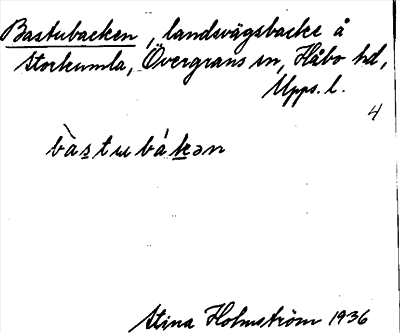 Bastubacken, landsvägsbacke å
Storkumla, Övergrans sn, Håbo hd,
Upps. l.
4
bàstubákən
Stina Holmström 1936